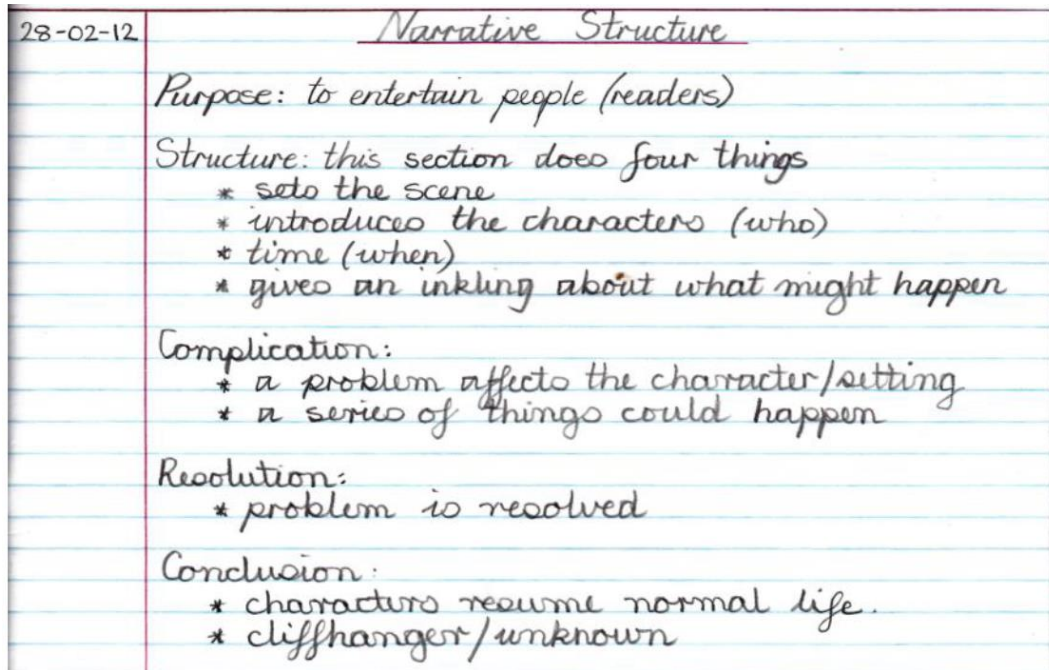 28-02-12
Narrative Structure
Purpose: to entertain people (readers)
Structure: this section does four things
* sets the scene
* introduces the characters (who)
* time (when)
* gives an inkling about what might happen
Complication:
* a problem affects the character/setting
* a series of things could happen
Resolution:
* problem is resolved
Conclusion:
* characters resume normal life.
* cliffhanger/unknown